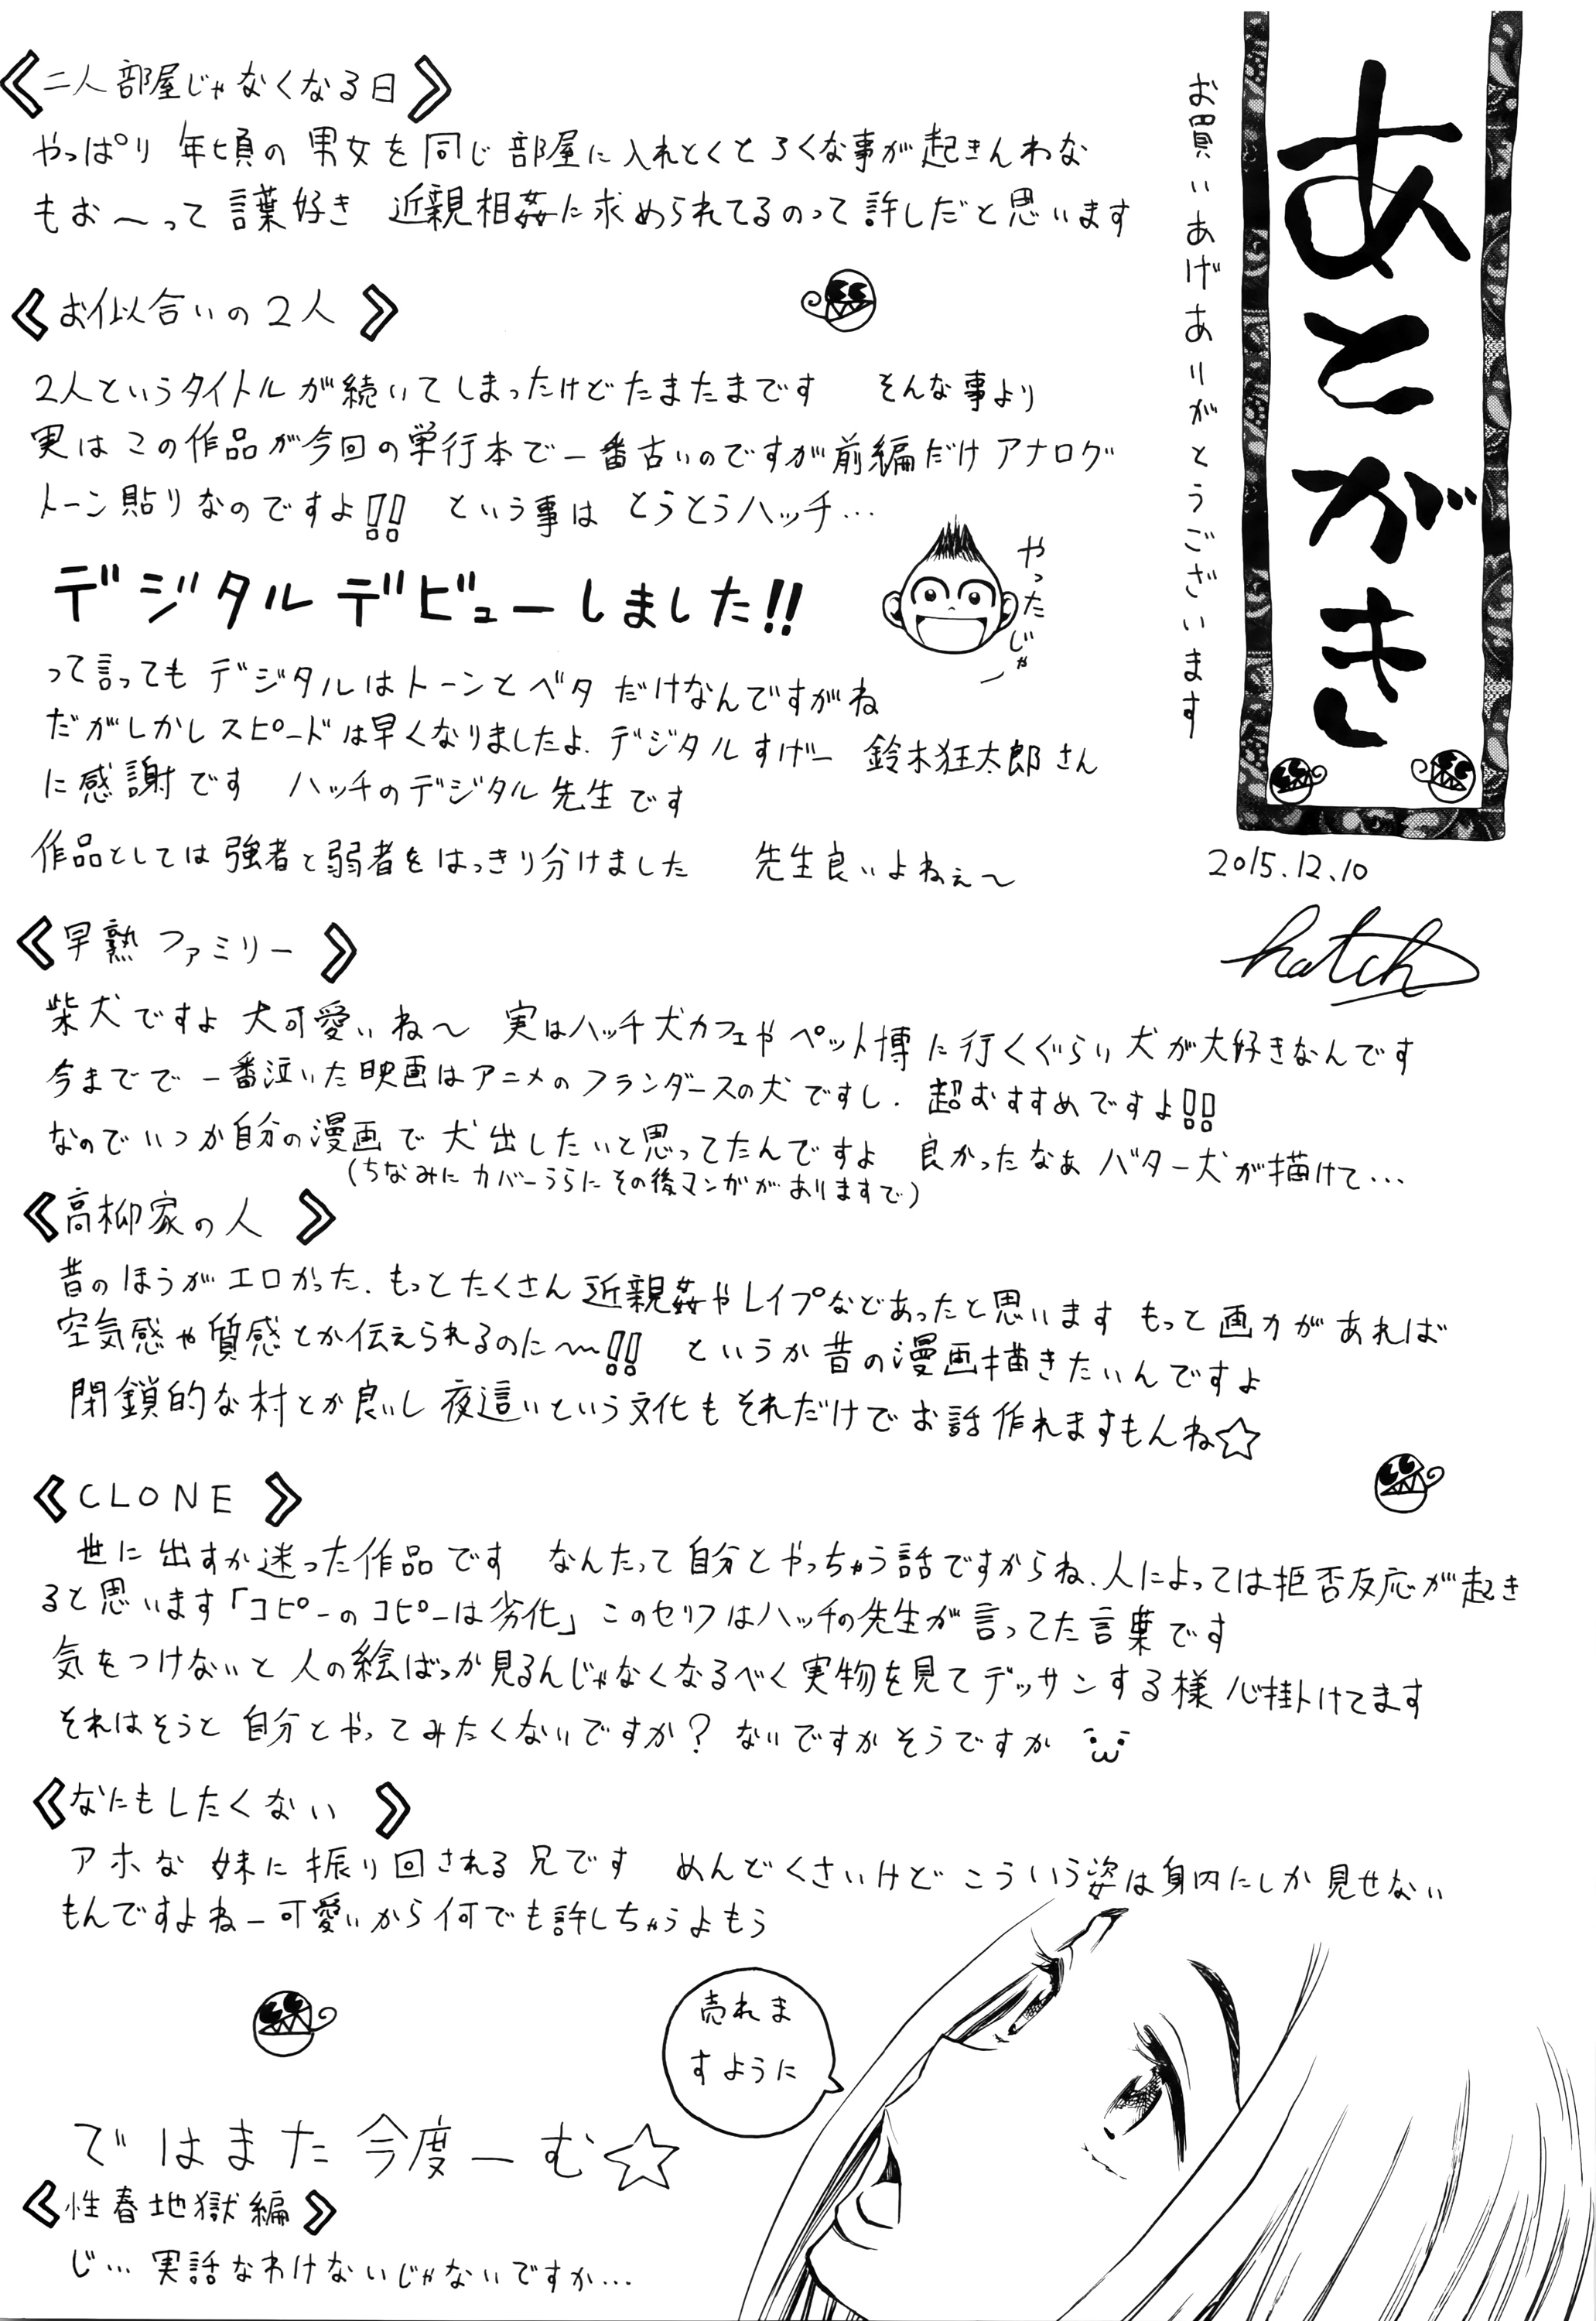 あとがき
お買いあげありがとうございます
2015.12.10
hatch
《二人部屋じゃなくなる日》
やっぱり 年頃の 男女を同じ部屋に入れとくとろくな事が起きんわな
もお〜って言葉好き 近親相姦に求められてるのって許しだと思います
《お似合いの2人》
2人というタイトルが続いてしまったけどたまたまです そんな事より
実はこの作品が今回の単行本で一番古いのですが前編だけアナログ
トーン貼りなのですよ!! という事は とうとうハッチ…
デジタルデビューしました!!
やったじゃー
って言っても デジタルはトーンとベタだけなんですがね
だがしかしスピードは早くなりましたよ、デジタルすげー 鈴木狂太郎さん
に感謝です ハッチのデジタル先生です
作品としては強者と弱者をはっきり分けました 先生良いよねぇ〜
《早熟ファミリー》
柴犬ですよ 犬可愛いね〜 実はハッチ犬カフェやペット博に行くぐらい犬が大好きなんです
今までで一番泣いた映画はアニメのフランダースの犬ですし、超おすすめですよ!!
なのでいつか自分の漫画で犬出したいと思ってたんですよ 良かったなぁ バター犬が描けて…
(ちなみにカバーうらにその後マンガがありますで)
《高柳家の人》
昔のほうがエロかった、もっとたくさん近親姦やレイプなどあったと思います もっと画力があれば
空気感や質感とか伝えられるのに〜!! というか昔の漫画描きたいんですよ
閉鎖的な村とか良いし 夜這いという文化もそれだけでお話作れますもんね☆
《CLONE》
世に出すか迷った作品です なんたって自分とやっちゃう話ですからね、人によっては拒否反応が起き
ると思います「コピーのコピーは劣化」このセリフはハッチの先生が言ってた言葉です
気をつけないと人の絵ばっか見るんじゃなくなるべく実物を見てデッサンする様心掛けてます
それはそうと自分とやってみたくないですか?ないですかそうですか
《なにもしたくない》
アホな妹に振り回される兄です めんどくさいけどこういう姿は身内にしか見せない
もんですよねー可愛いから何でも許しちゃうよもう
売れま
すように
ではまた今度ーむ☆
《性春地獄編》
じ…実話なわけないじゃないですか…